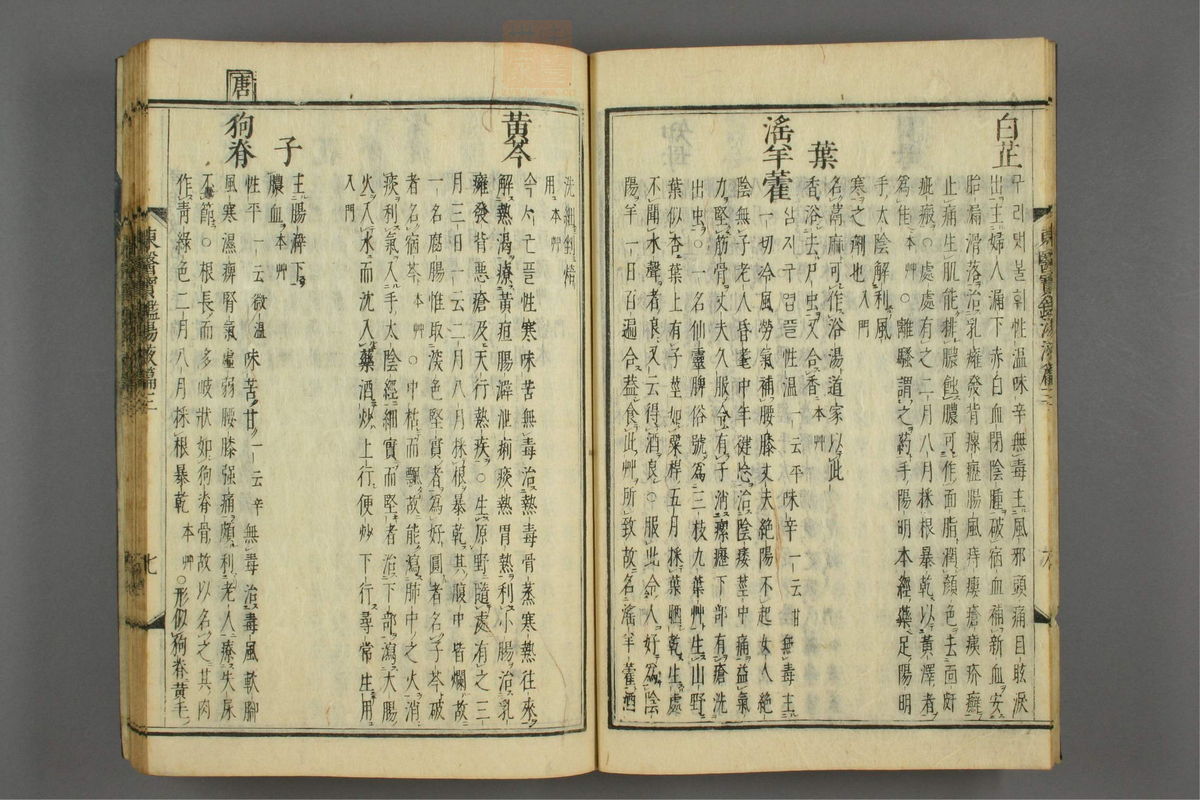 白芷
구리댓불휘性溫味辛無毒主風邪頭痛目眩淚
出主婦人漏下赤白血閉陰腫破宿血補新血安
胎漏滑落治乳癰發背瘰癧腸風痔瘻瘡痍疥癬
止痛生肌能排膿蝕膿可作面脂潤顏色去面皯
疵瘢○處處有之二月八月採根暴乾以黃澤者
爲佳本艸○離騷謂之葯手陽明本經藥足陽明
手太陰解利風
寒之劑也入門
葉
名蒚麻可作浴湯道家以此
香浴去尸虫又合香本艸
淫羊藿
삼지구엽플性溫一云平味辛一云甘無毒主
一切冷風勞氣補腰膝丈夫絶陽不起女人絶
陰無子老人昏耄中年健忘治陰痿莖中痛益氣
力堅筋骨丈夫久服令有子消瘰癧下部有瘡洗
出虫○一名仙靈脾俗號爲三枝九葉艸生山野
葉似杏葉上有子莖如粟稈五月採葉晒乾生處
不聞水聲者良又云得酒良○服此令人好爲陰
陽羊一日百遍合葢食此艸所致故名淫羊藿酒
東醫寶鑑湯液篇三
六
洗細剉焙
用本艸
黃芩
性寒味苦無毒治熱毒骨蒸寒熱往來
解熱渴療黃疸腸澼泄痢痰熱胃熱利小腸治乳
癰發背惡瘡及天行熱疾○生原野隨處有之三
月三日一云二月八月採根暴乾其腹中皆爛故
一名腐腸惟取深色堅實者爲好圓者名子芩破
者名宿芩本艸○中枯而飄故能瀉肺中之火消
痰利氣入手太陰經細實而堅者治下部瀉大腸
火入水而沈入藥酒炒上行便炒下行尋常生用
入門
子
主腸澼下
膿血本艸
唐
狗脊
性平一云微溫味苦甘一云辛無毒治毒風軟脚
風寒濕痺腎氣虛弱腰膝强痛頗利老人療失尿
不節○根長而多岐狀如狗脊骨故以名之其肉
作靑綠色二月八月採根暴乾本艸○形似狗脊黃毛
東醫寶鑑湯液篇三
七